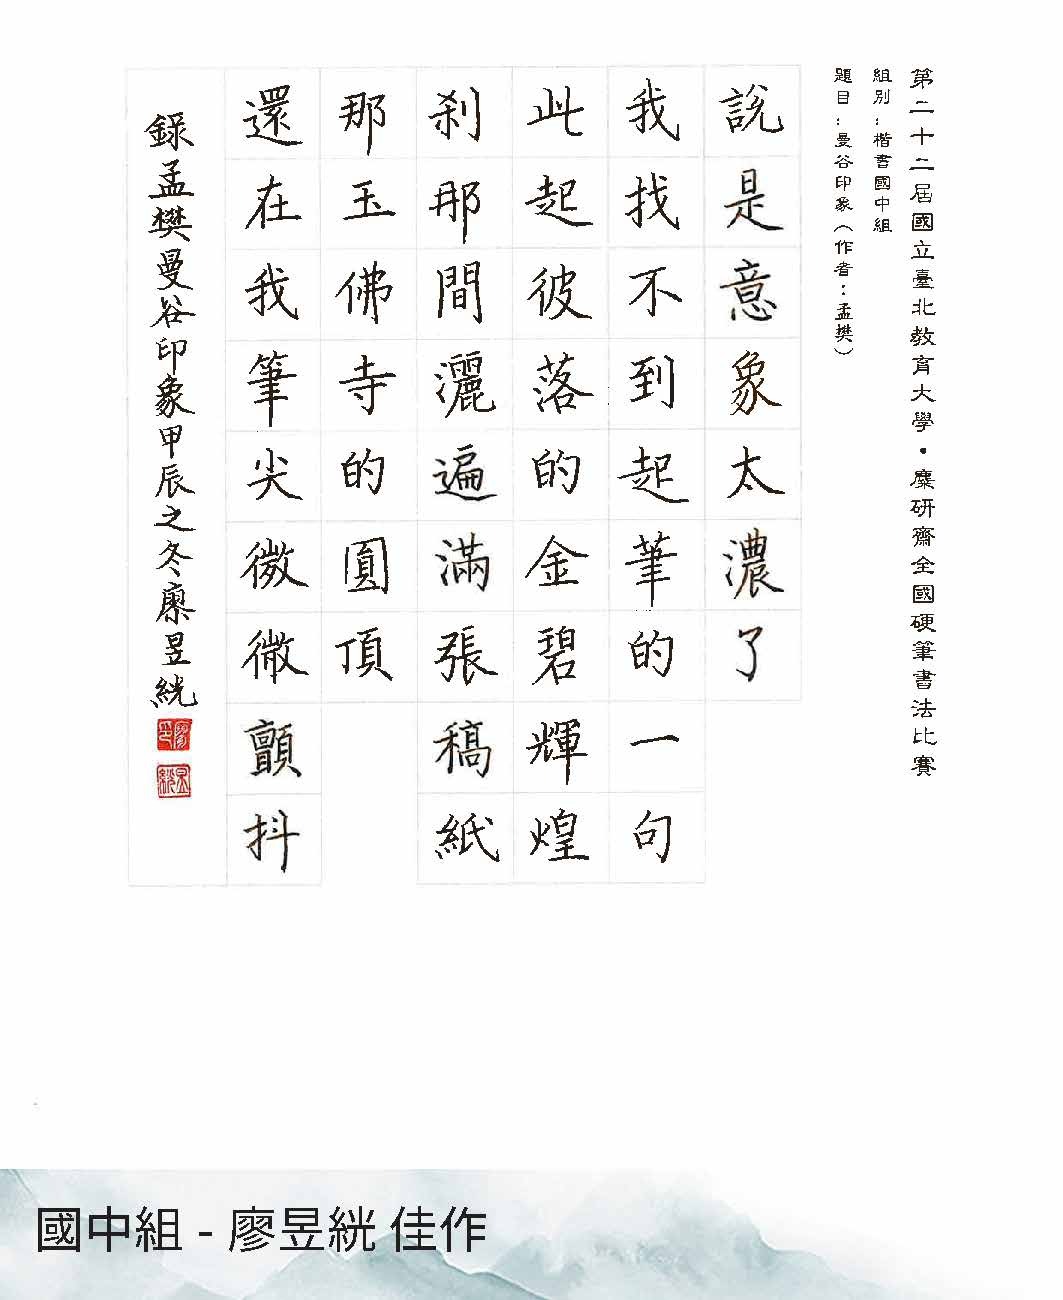 第二十二屆國立臺北教育大學・麋研齋全國硬筆書法比賽
組別：楷書國中組
題目：曼谷印象（作者：孟樊）
說是意象太濃了
我找不到起筆的一句
此起彼落的金碧輝煌
剎那間灑遍滿張稿紙
那玉佛寺的圓頂
還在我筆尖微微顫抖
錄孟樊曼谷印象甲辰之冬廖昱絖
國中組 - 廖昱絖 佳作